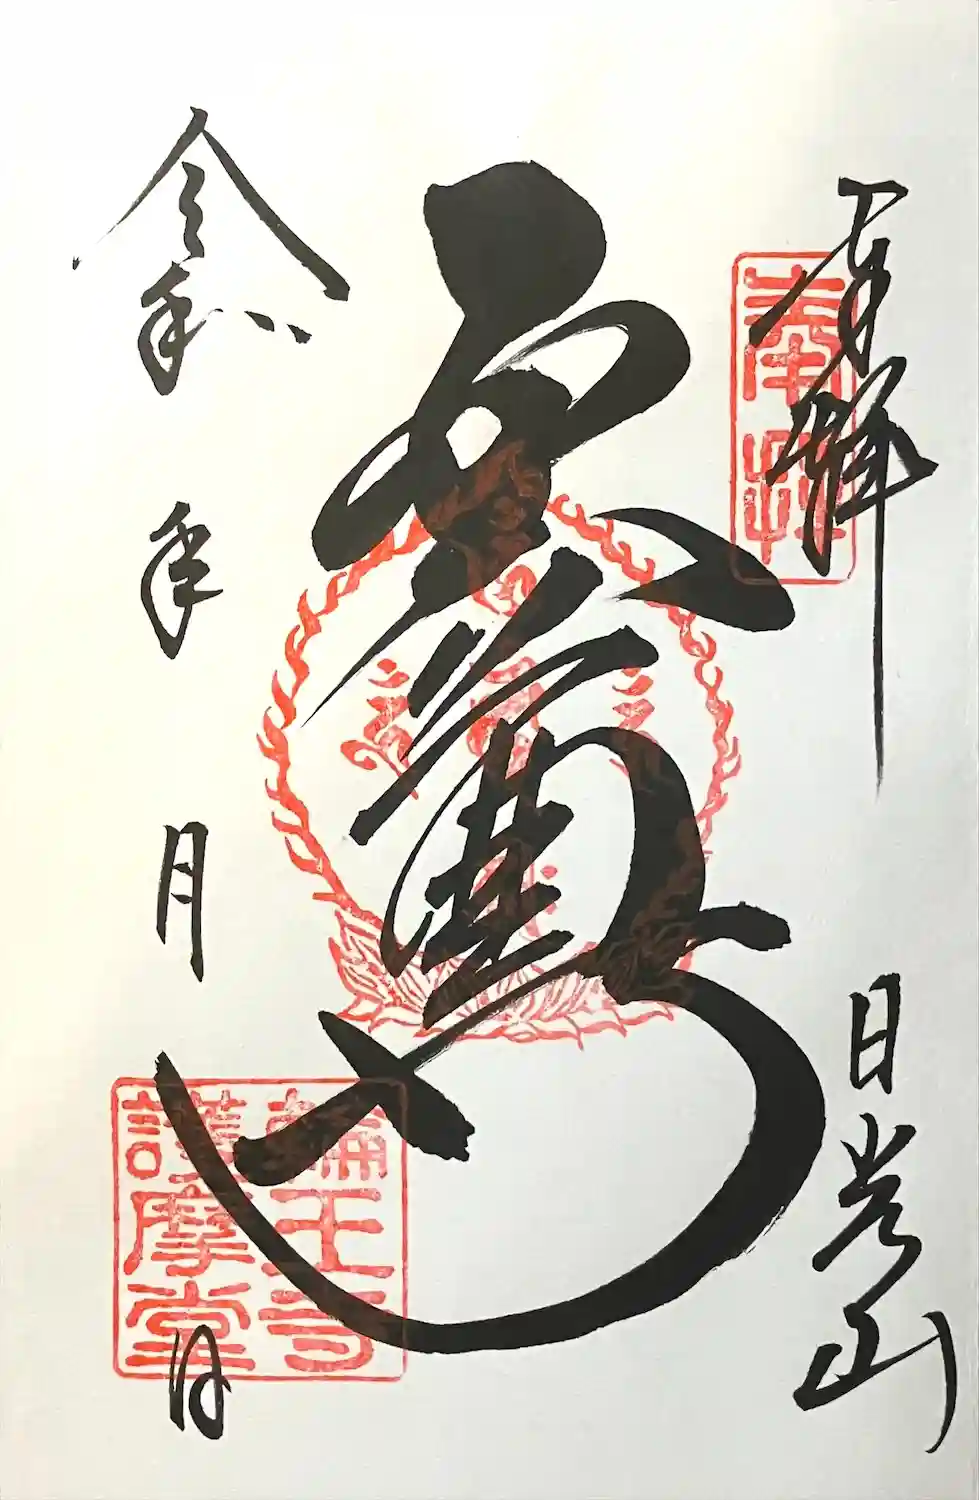 奉拝
日光山
五大尊
令和 年 月 日
輪王寺
護摩堂